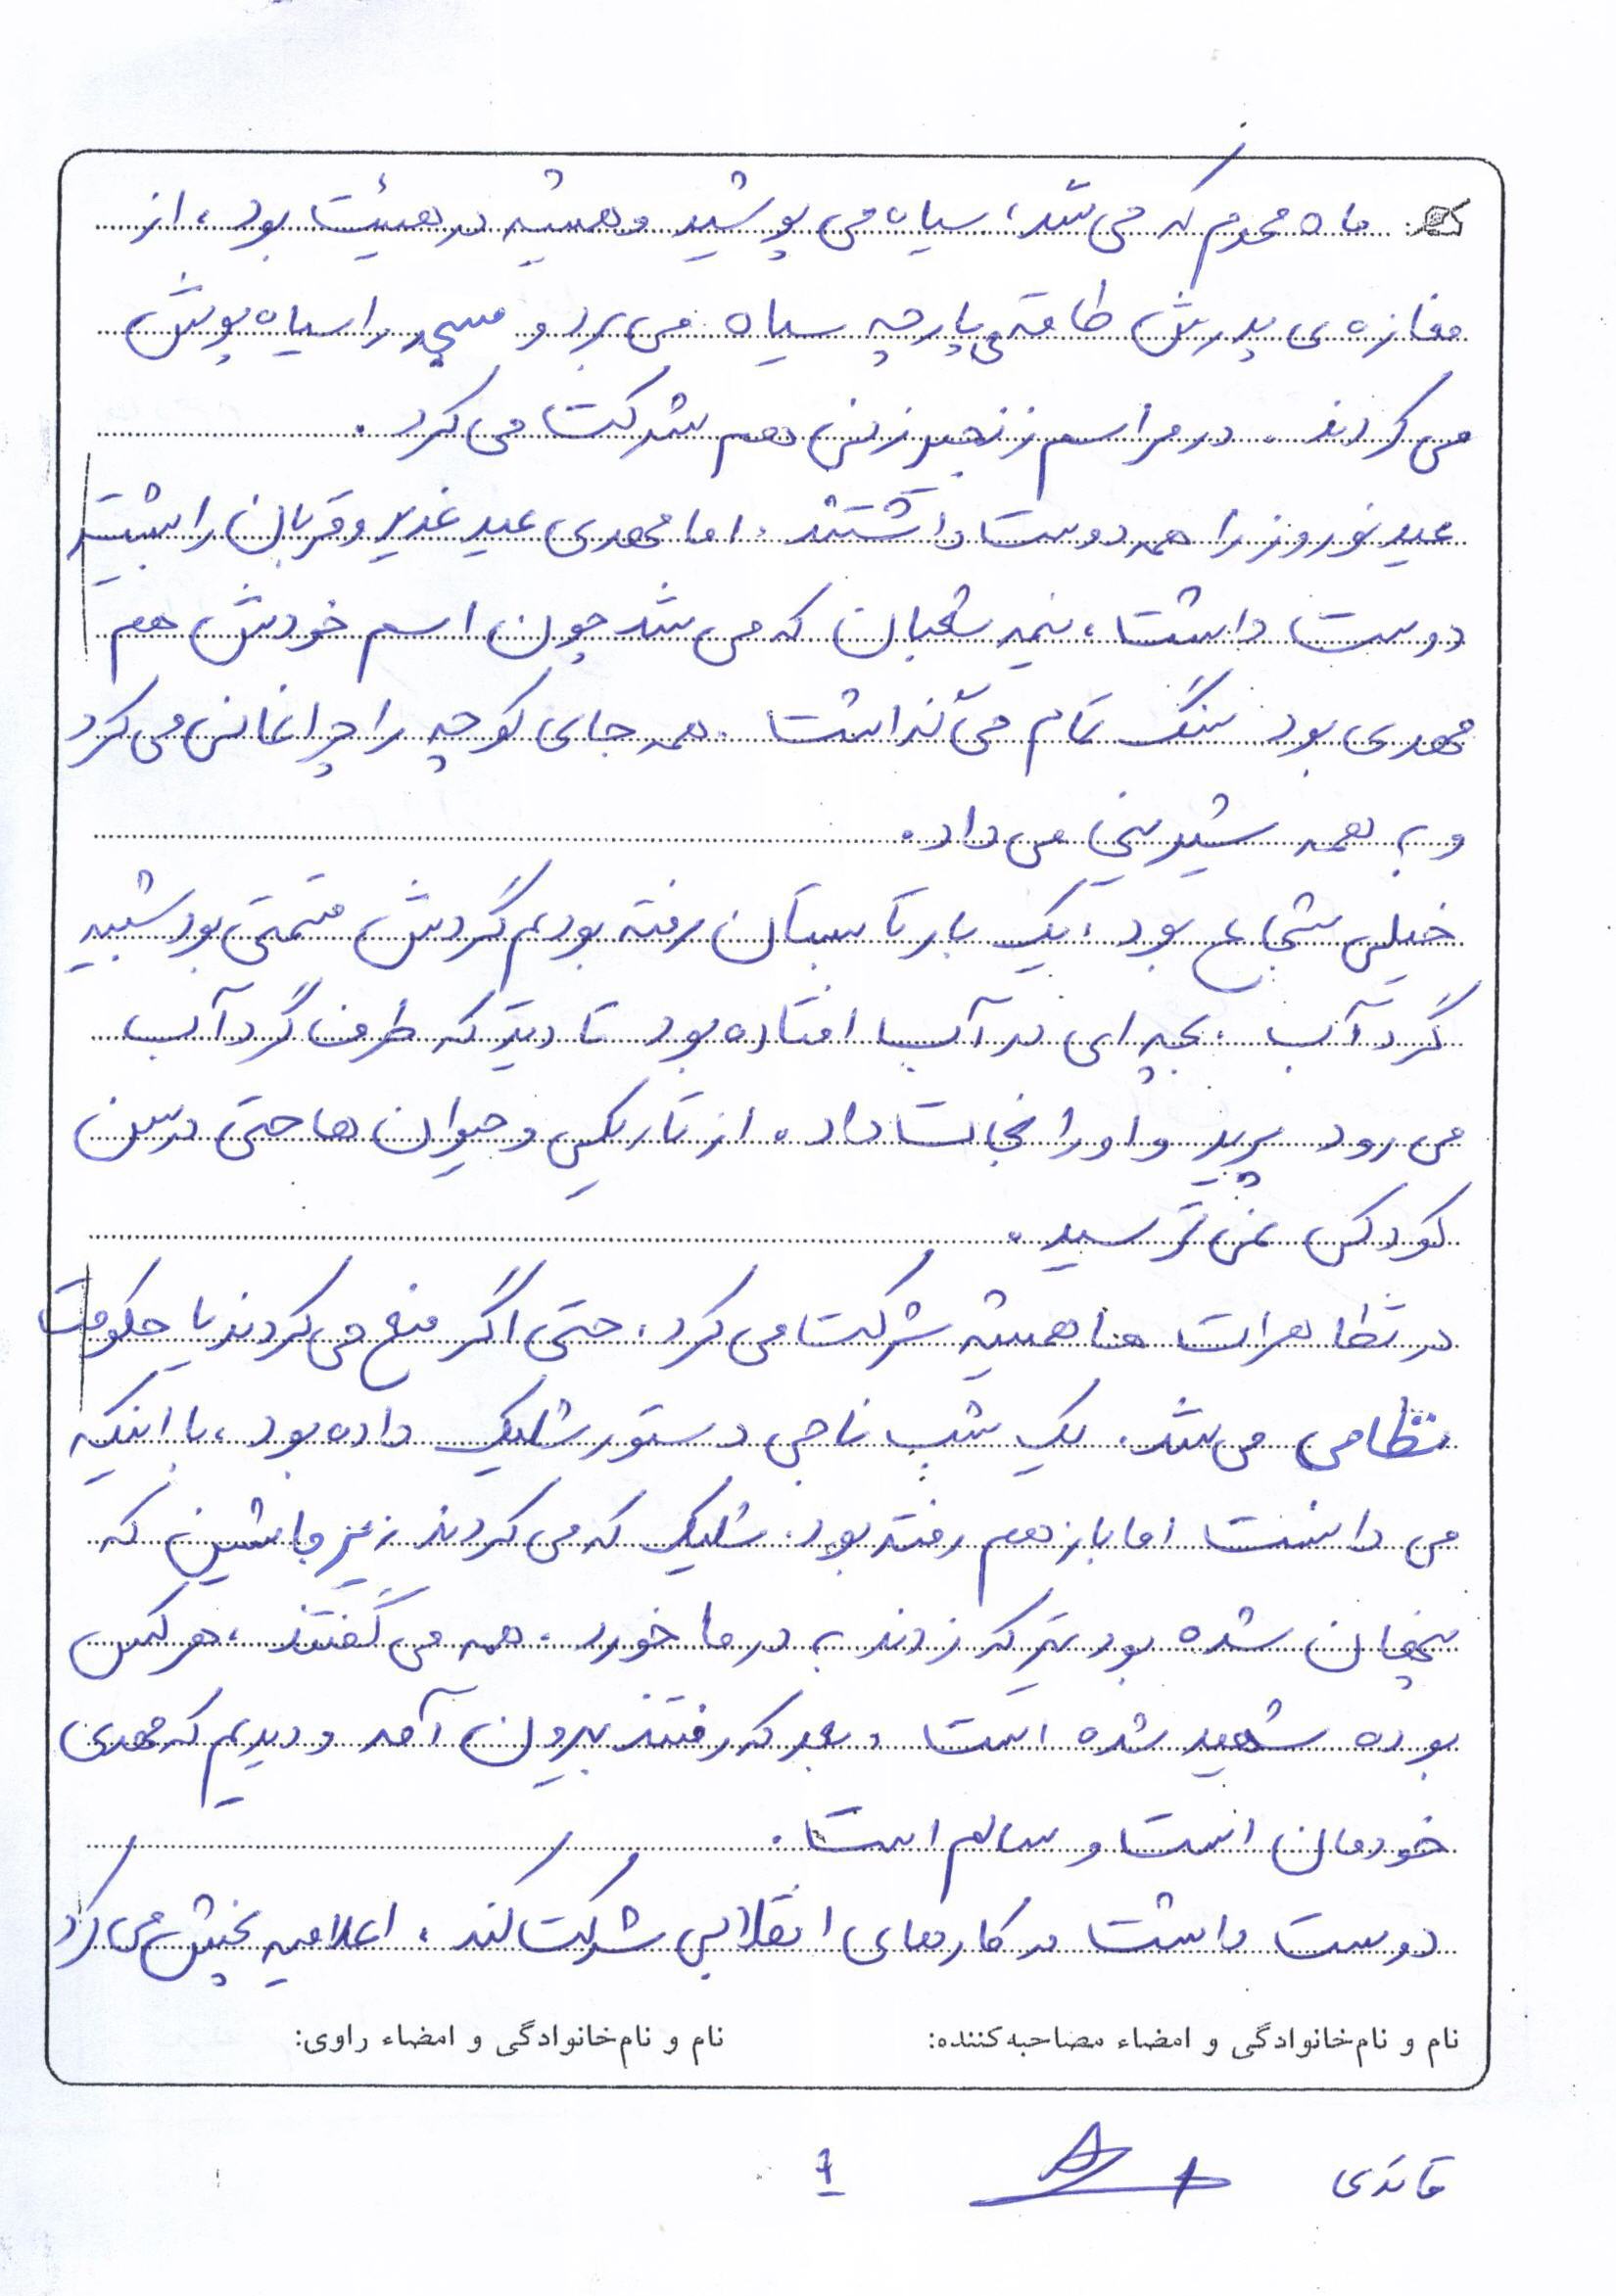 ماه محرم که می شد، سیاه می پوشید و همیشه در هیئت بود، از
مغازه ی پدرش طاقه ی پارچه سیاه می برد و مسجد را سیاه پوش
می کردند. در مراسم زنجیر زنی هم شرکت می کرد.
عید نوروز را همه دوست داشتند. اما مهدی عید غدیر و قربان را بیشتر
دوست داشت، نیمه شعبان که می شد چون اسم خودش هم
مهدی بود سنگ تمام می گذاشت. همه جای کوچه را چراغانی می کرد
و به همه شیرینی می داد.
خیلی شجاع بود، یک بار تابستان رفته بودیم گردش قسمتی بود شبیه
گرد آب. بچه ای در آب افتاده بود تا دید که طرف گرد آب
می رود پرید و او را نجات داد. از تاریکی و حیوان ها حتی در سن
کودکی نمی ترسید.
در تظاهرات ها همیشه شرکت می کرد. حتی اگر منع می کردند یا حکومت
نظامی می شد. یک شب ناجی دستور شلیک داده بود، با اینکه
می دانست اما باز هم رفته بود. شلیک که می کردند زیر ماشین که
پنهان شده بود تیر که زدند به در ما خورد. همه می گفتند، هر کس
بوده شهید شده است و بعد که رفتند بیرون آمد و دیدیم که مهدی
خودمان است و سالم است.
دوست داشت در کارهای انقلابی شرکت کند. اعلامیه پخش می کرد
نام و نام‌خانوادگی و امضاء مصاحبه‌کننده: نام و نام‌خانوادگی و امضاء راوی: